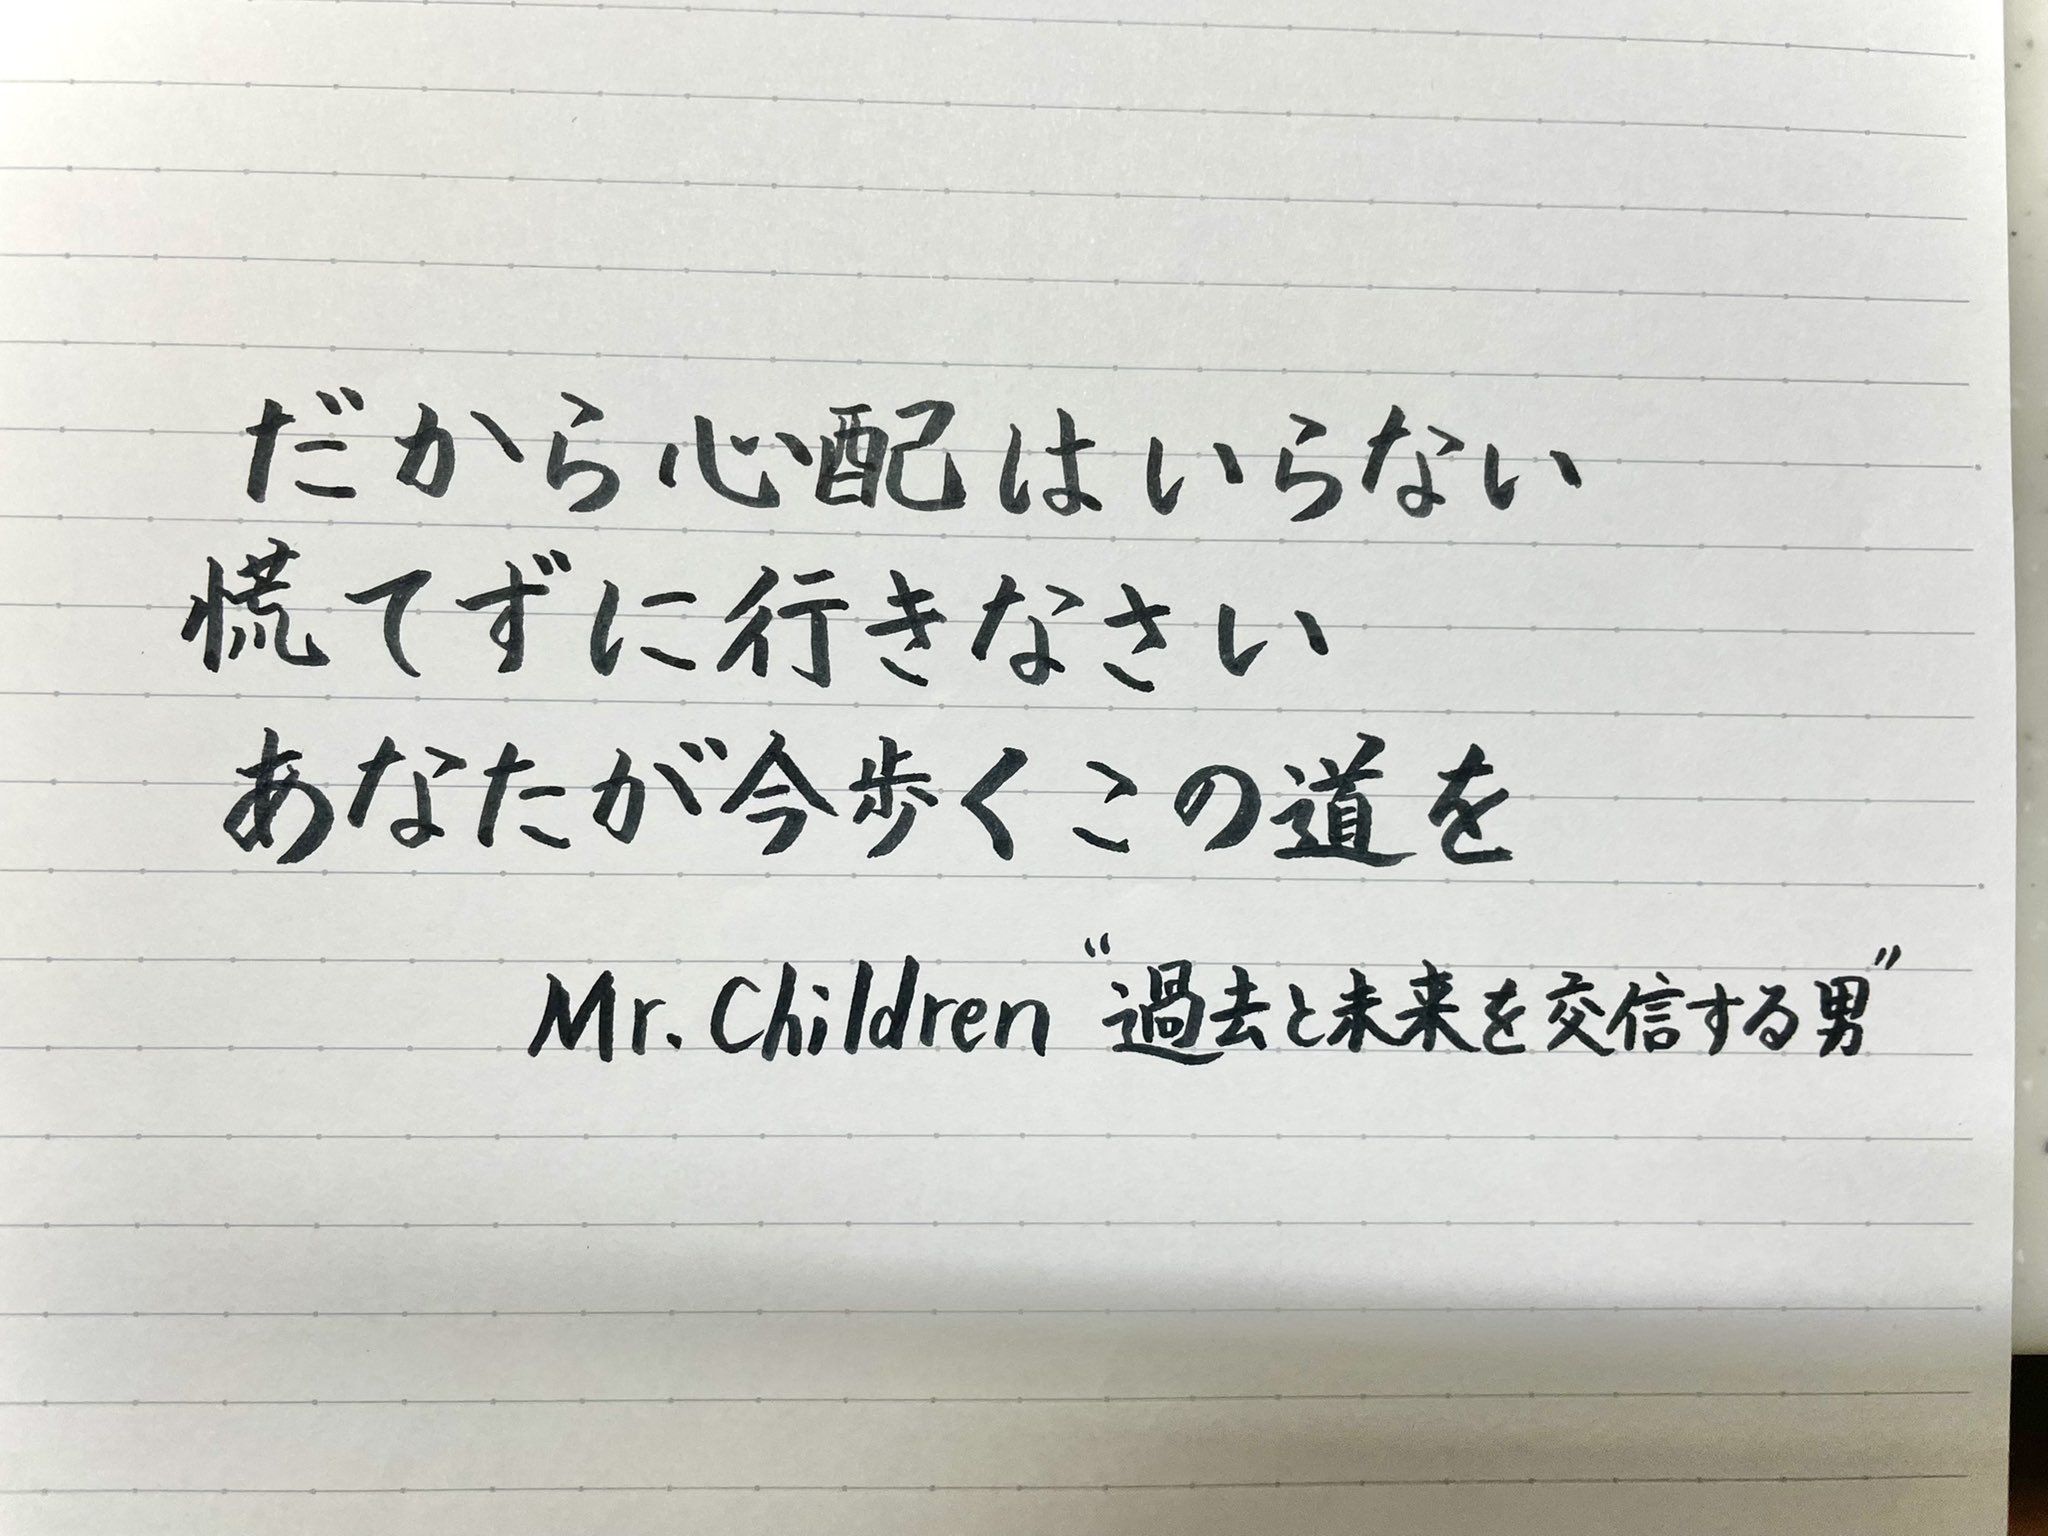 だから心配はいらない
慌てずに行きなさい
あなたが今歩くこの道を
Mr. Children “過去と未来を交信する男”